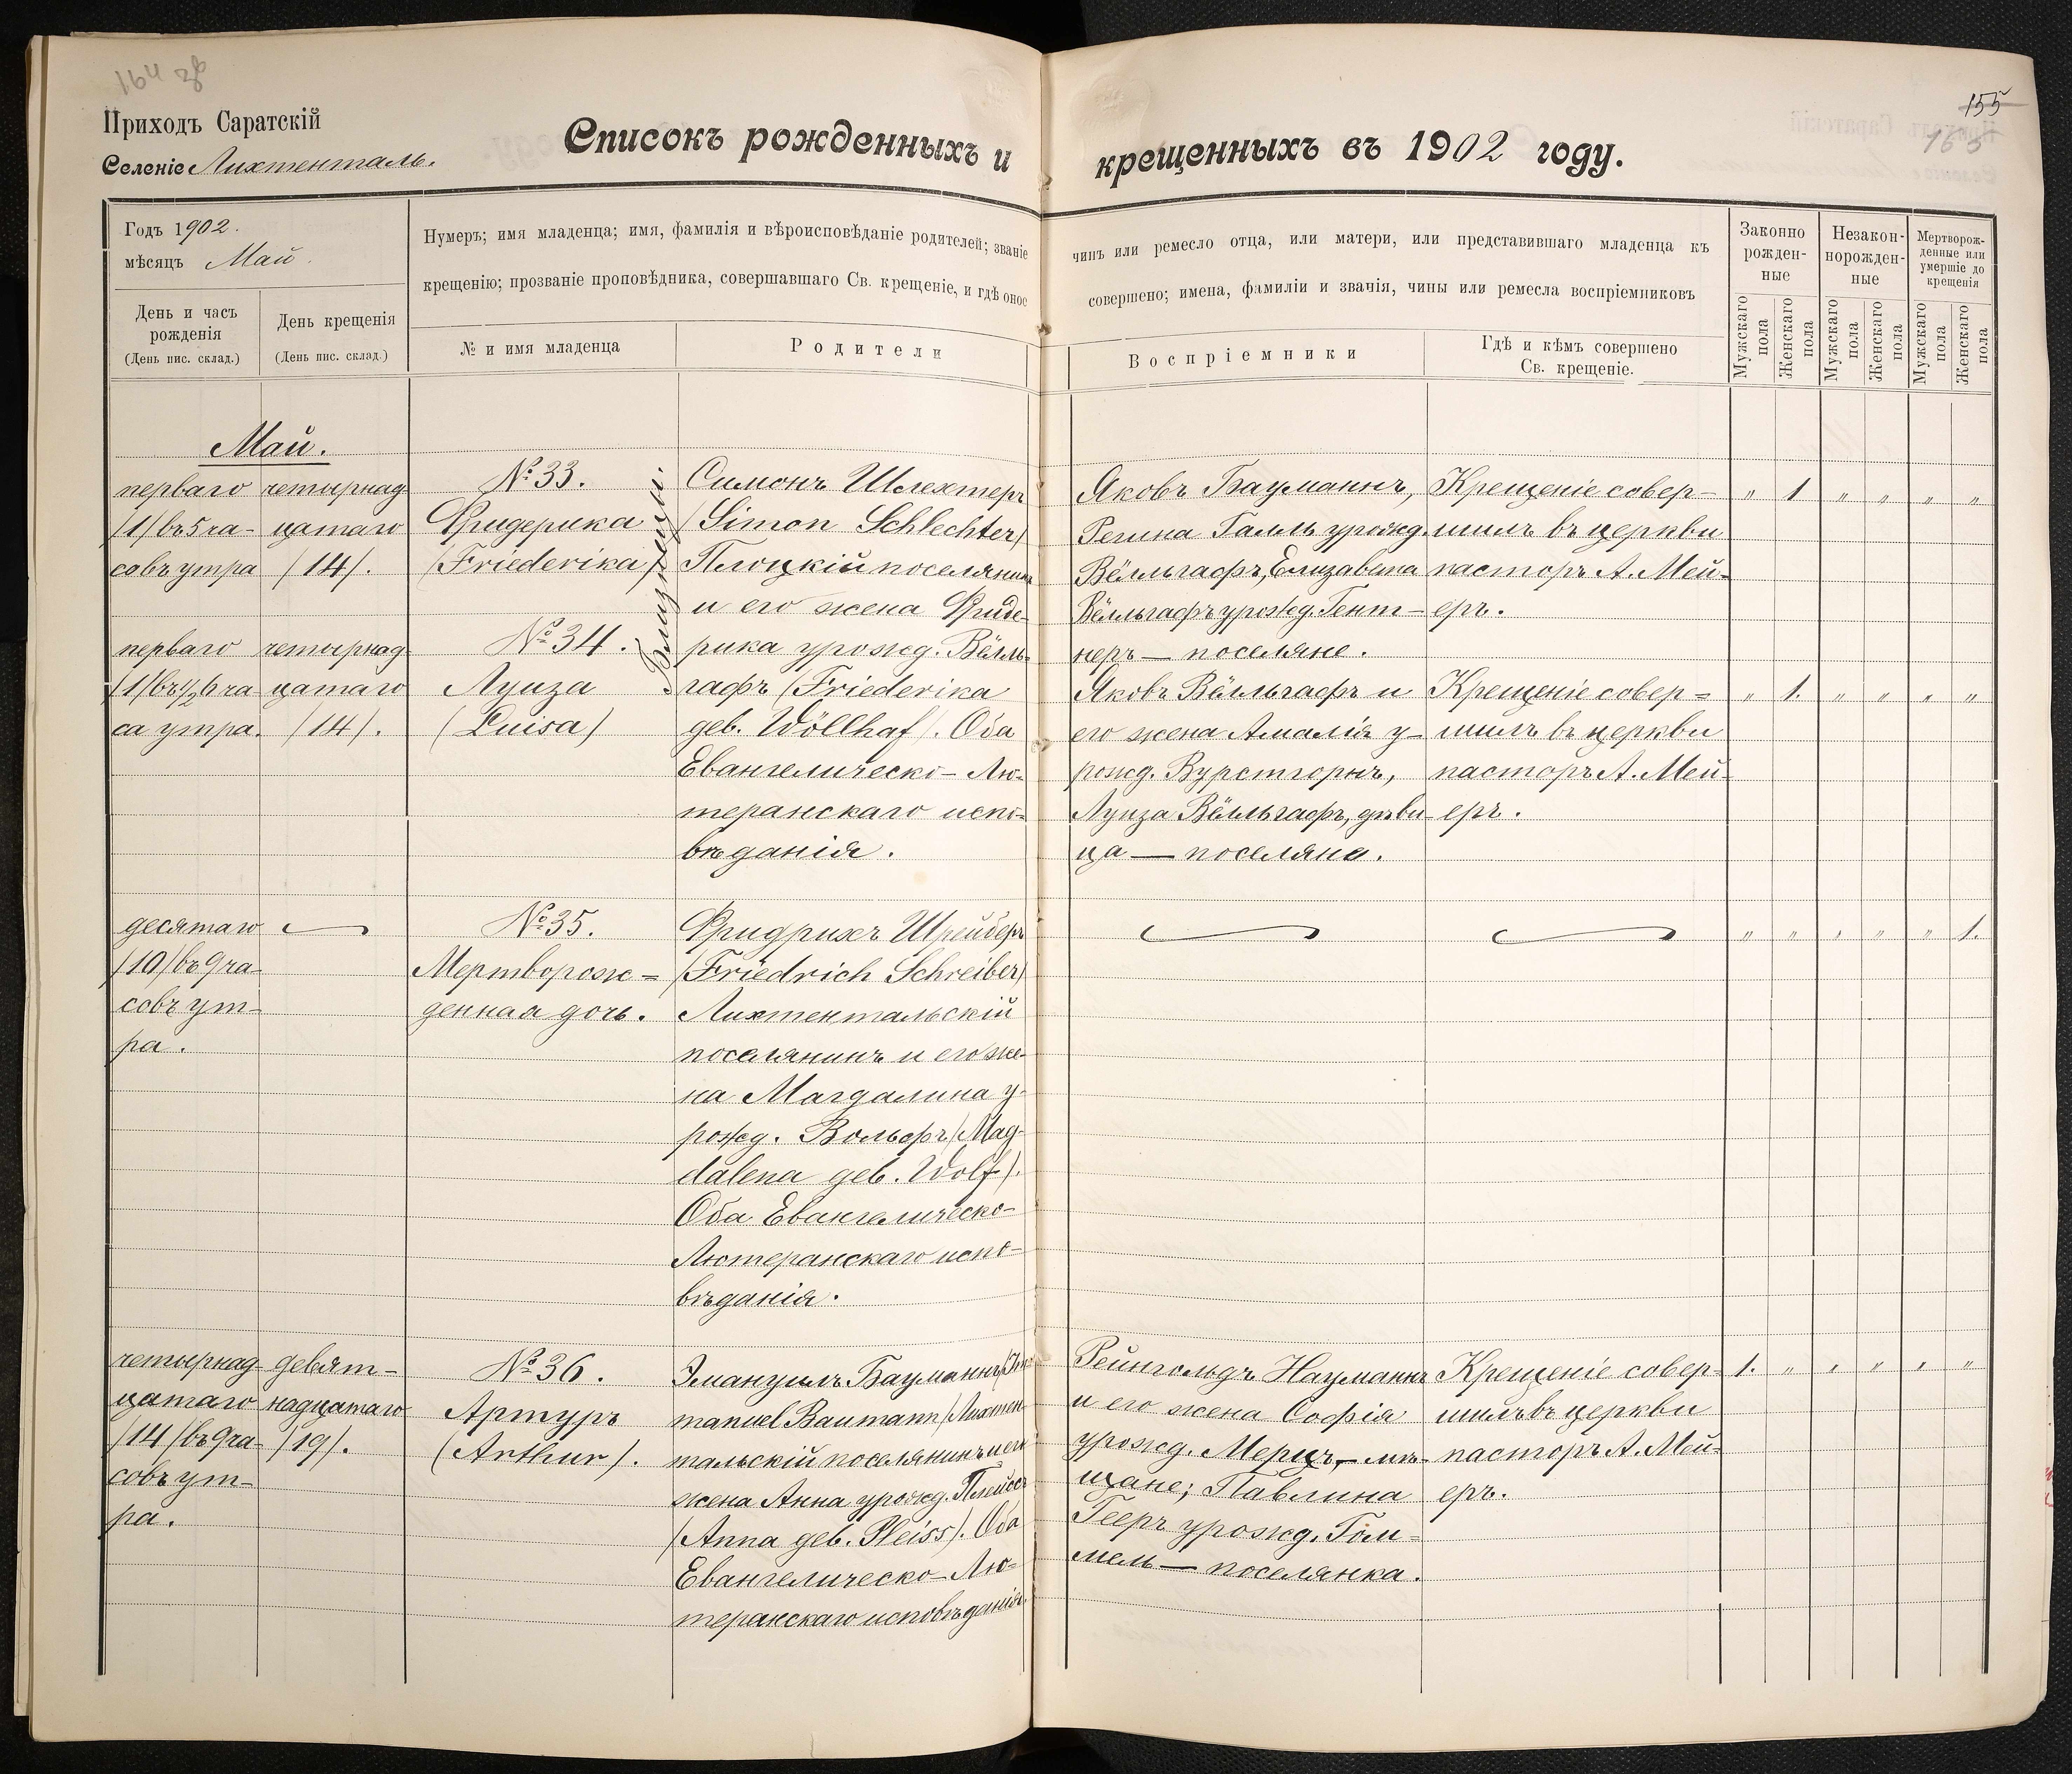 164 зв
155
165
Приходъ Саратскій
Селеніе Лихтенталь.
Списокъ рожденныхъ и крещенныхъ въ 1902 году.
Годъ 1902.
мѣсяцъ Май.
День и часъ
рожденія
(День пис. склад.)
День крещенія
(День пис. склад.)
Нумеръ; имя младенца; имя, фамилія и вѣроисповѣданіе родителей; званіе
крещенію; прозваніе проповѣдника, совершавшаго Св. крещеніе, и гдѣ оное
№ и имя младенца
Родители
чинъ или ремесло отца, или матери, или представившаго младенца къ
совершено; имена, фамиліи и званія, чины или ремесла воспріемниковъ
Воспріемники
Гдѣ и кѣмъ совершено
Св. крещеніе.
Законно
рожден-
ные
Незакон-
норожден-
ные
Мертворож-
денные или
умершіе до
крещенія
Мужскаго
пола
Женскаго
пола
Мужскаго
пола
Женскаго
пола
Мужскаго
пола
Женскаго
пола
Май.
перваго
/1/ въ 5 ча-
совъ утра
четырнад
цатаго
/14/.
№ 33.
Фридерика
(Friederika)
Близнецы.
Симонъ Шлехтеръ
(Simon Schlechter)
Плоцкій поселянинъ
и его жена Фриде-
рика урожд. Вёлль-
гафъ (Friederika
geb. Wöllhaf). Оба
Евангелическо-Лю-
теранскаго испо-
вѣданія.
Яковъ Бауманнъ,
Регина Галль урожд.
Вёлльгафъ, Елизавета
Вёлльгафъ урожд. Гент-
неръ — поселяне.
Крещеніе совер-
шилъ въ церкви
пасторъ А. Мей-
еръ.
" 1 " " " "
перваго
/1/ въ ½ 6 ча
са утра.
четырнад
цатаго
/14/.
№ 34.
Луиза
(Luisa)
Яковъ Вёлльгафъ и
его жена Амалія у-
рожд. Вурстгорнъ,
Луиза Вёлльгафъ, дѣви
ца — поселяне.
Крещеніе совер=
шилъ въ церкви
пасторъ А. Мей-
еръ.
" 1. " " " "
десятаго
/10/ въ 9 ча
совъ ут-
ра.
№ 35.
Мертворож=
денная дочь.
Фридрихъ Шрейберъ
(Friedrich Schreiber)
Лихтентальскій
поселянинъ и его же-
на Магдалина у-
рожд. Вольфъ (Mag-
dalena geb. Wolf).
Оба Евангелическо-
Лютеранскаго испо-
вѣданія.
" " " " " 1.
четырнад-
цатаго
/14/ въ 9 ча-
совъ ут-
ра.
девят-
надцатаго
/19/.
№ 36.
Артуръ
(Arthur).
Эмануилъ Бауманнъ
manuel Baumann) Лихтен-
тальскій поселянинъ и его
жена Анна урожд. Плейссъ
(Anna geb. Pleiss). Оба
Евангелическо-Лю-
теранскаго исповѣданія.
Рейнгольдъ Науманнъ
и его жена Софія
урожд. Мерцъ, — мѣ-
щане; Павлина
Гееръ урожд. Гом=
мель — поселянка.
Крещеніе совер-
шилъ въ церкви
пасторъ А. Мей-
еръ.
1. " " " " "